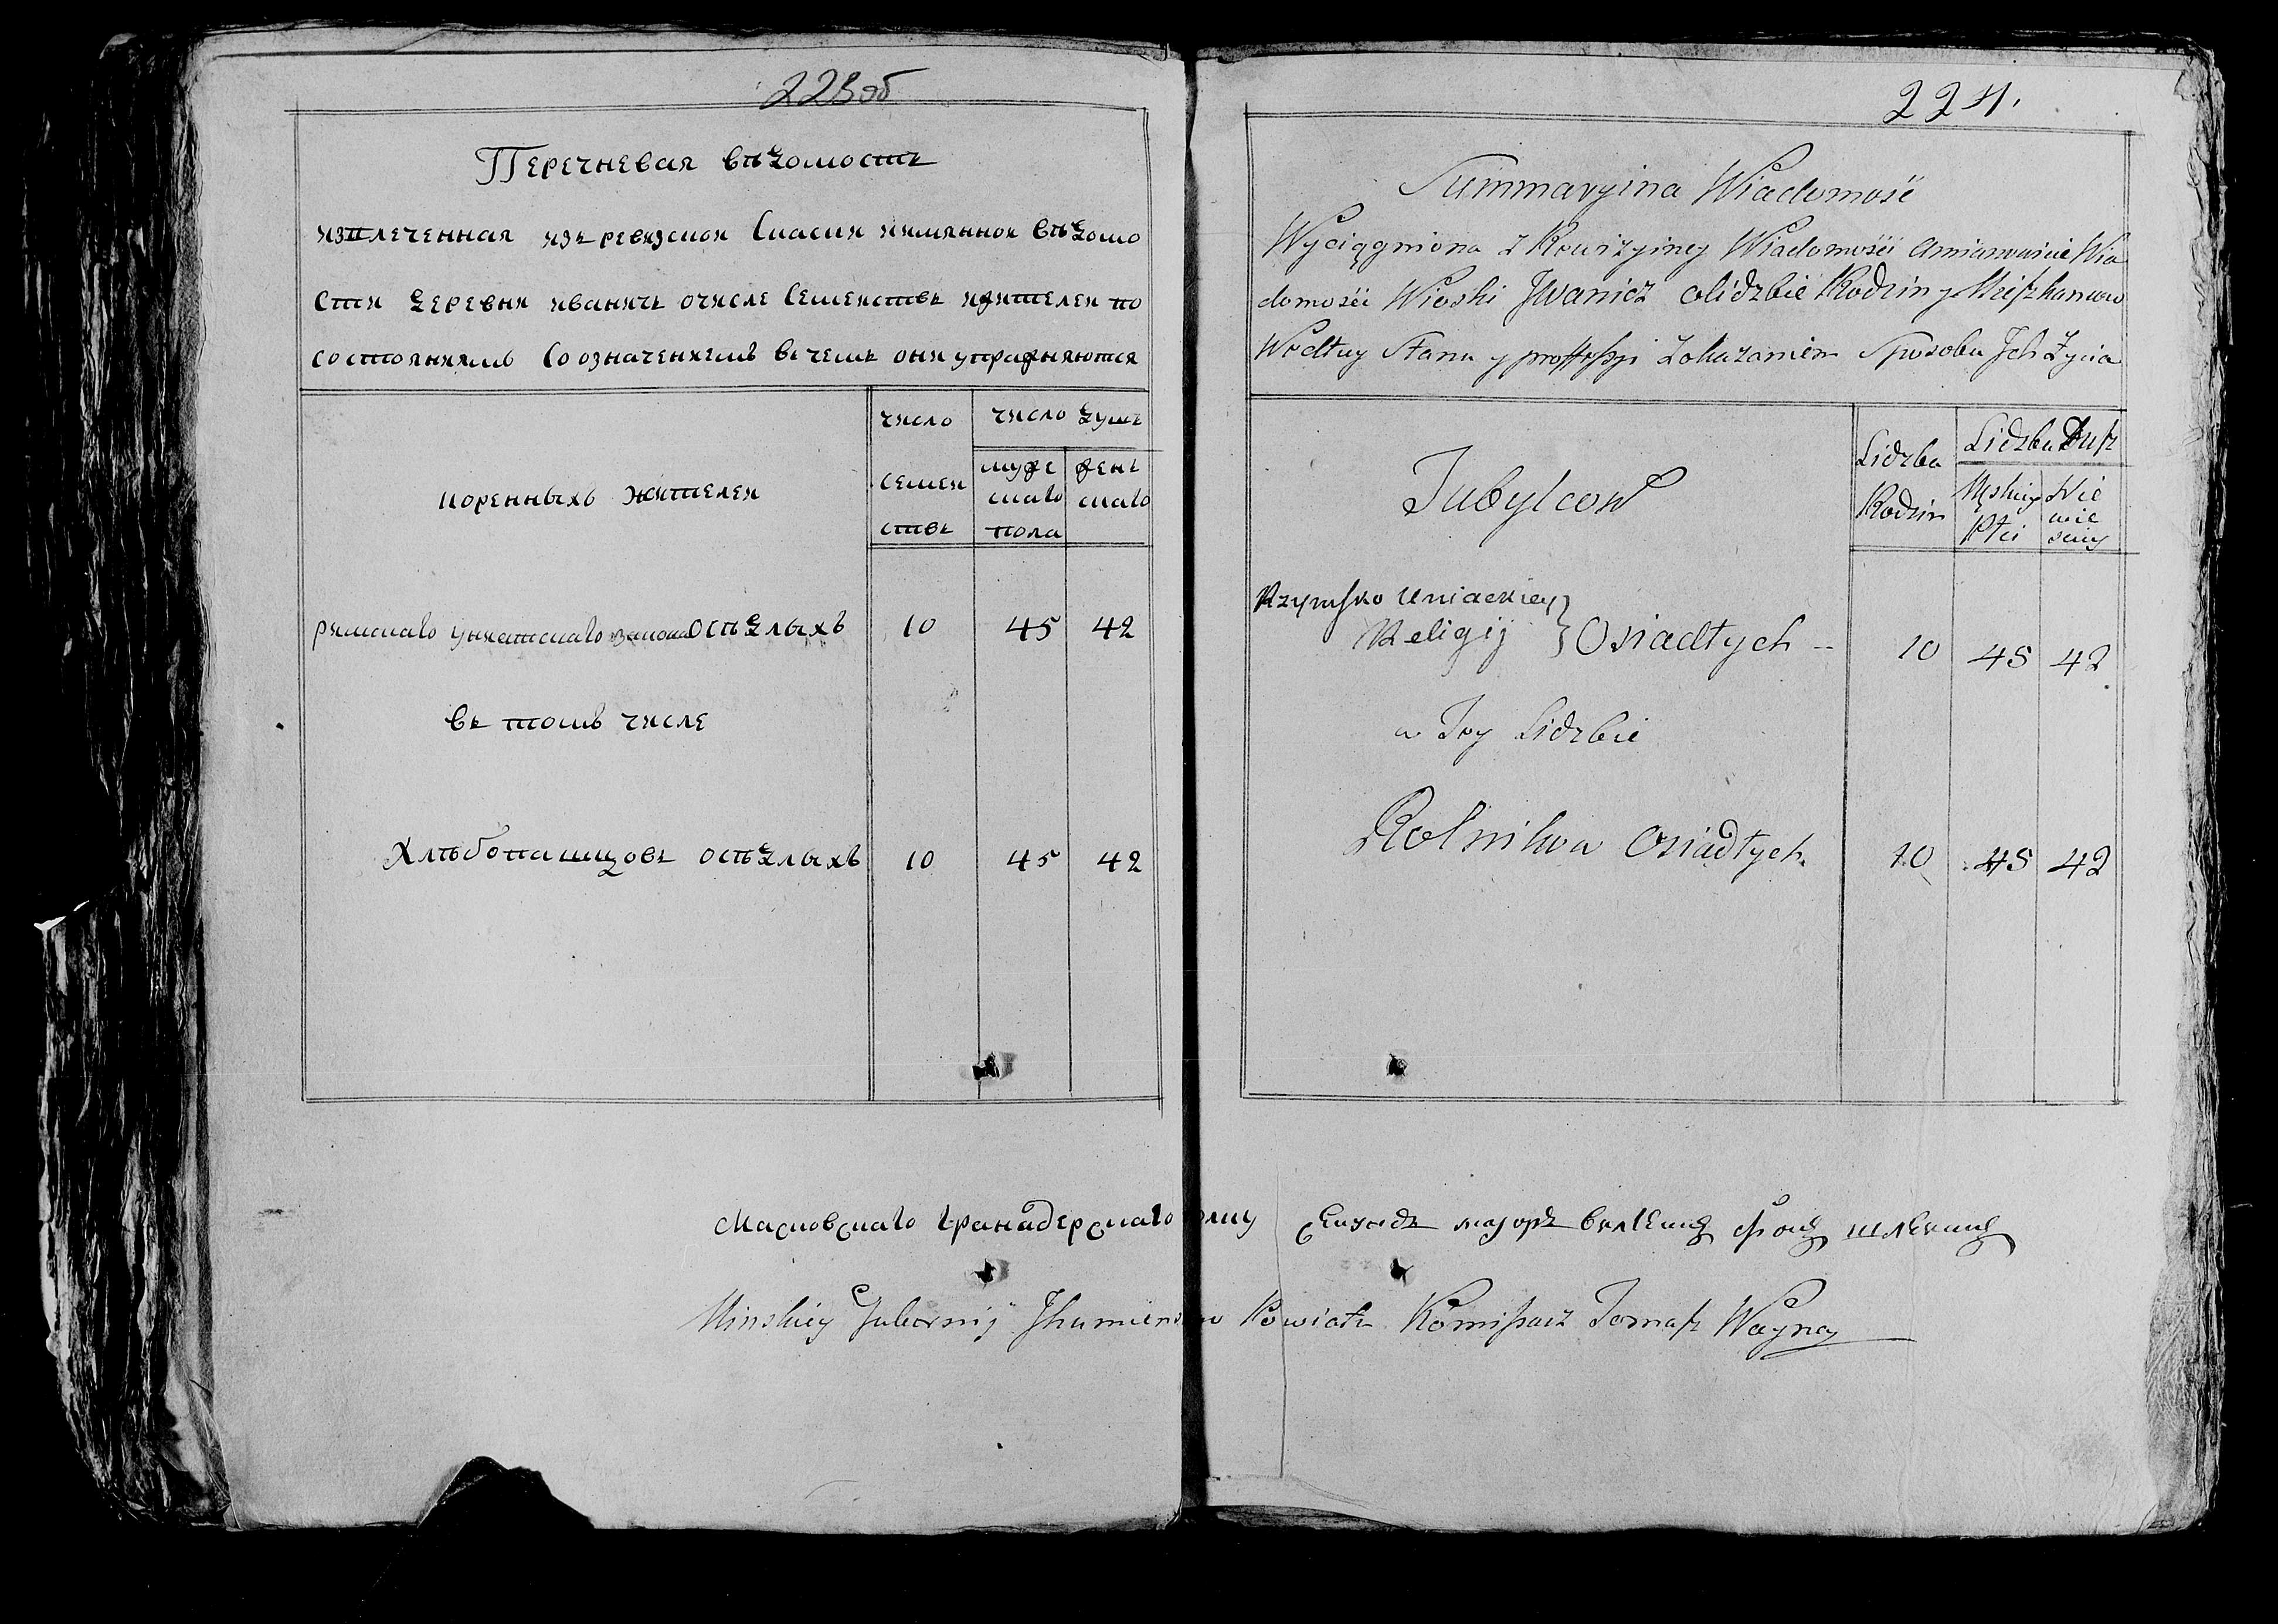 223об
Перечневая вѣдомость
извлеченная изъ ревизской Скаски имянной вѣдомо
сти деревни иваничь очисле Семействъ жителей по
состояниямъ Со означениемъ вчемъ они упражняются
коренныхъ жителей
число
семей
ствъ
число душъ
муже
скаго
пола
женс
скаго
римскаго униатскаго закона осѣдлыхъ 10 45 42
въ томъ числе
Хлѣбопашцовъ осѣдлыхъ 10 45 42
224.
Summaryina Wiadomość
Wyciągniona z Rewizyiney Wiadomości Amianowicie Wia
domości Wioski Jwanicz olidzbie Rodzin y Mieszkancow
Wedłuy Stanu y proffessyi Zokazaniem Sposobu Jch Życia
Tubylcow
Lidzba
Rodzin
Lidzba Dusz
Męskiey
Płci
Nie
wie
sciey
Rzymsko Uniackiey
Religij } Osiadłych -- 10 45 42
w Tey Lidzbie
Rolnikow Osiadłych 10 45 42
Московскаго Гранадерскаго полку Секундъ маіоръ
Minskiey Gubernij Jhumiensk Powiatu Komissarz Tomasz Wayna